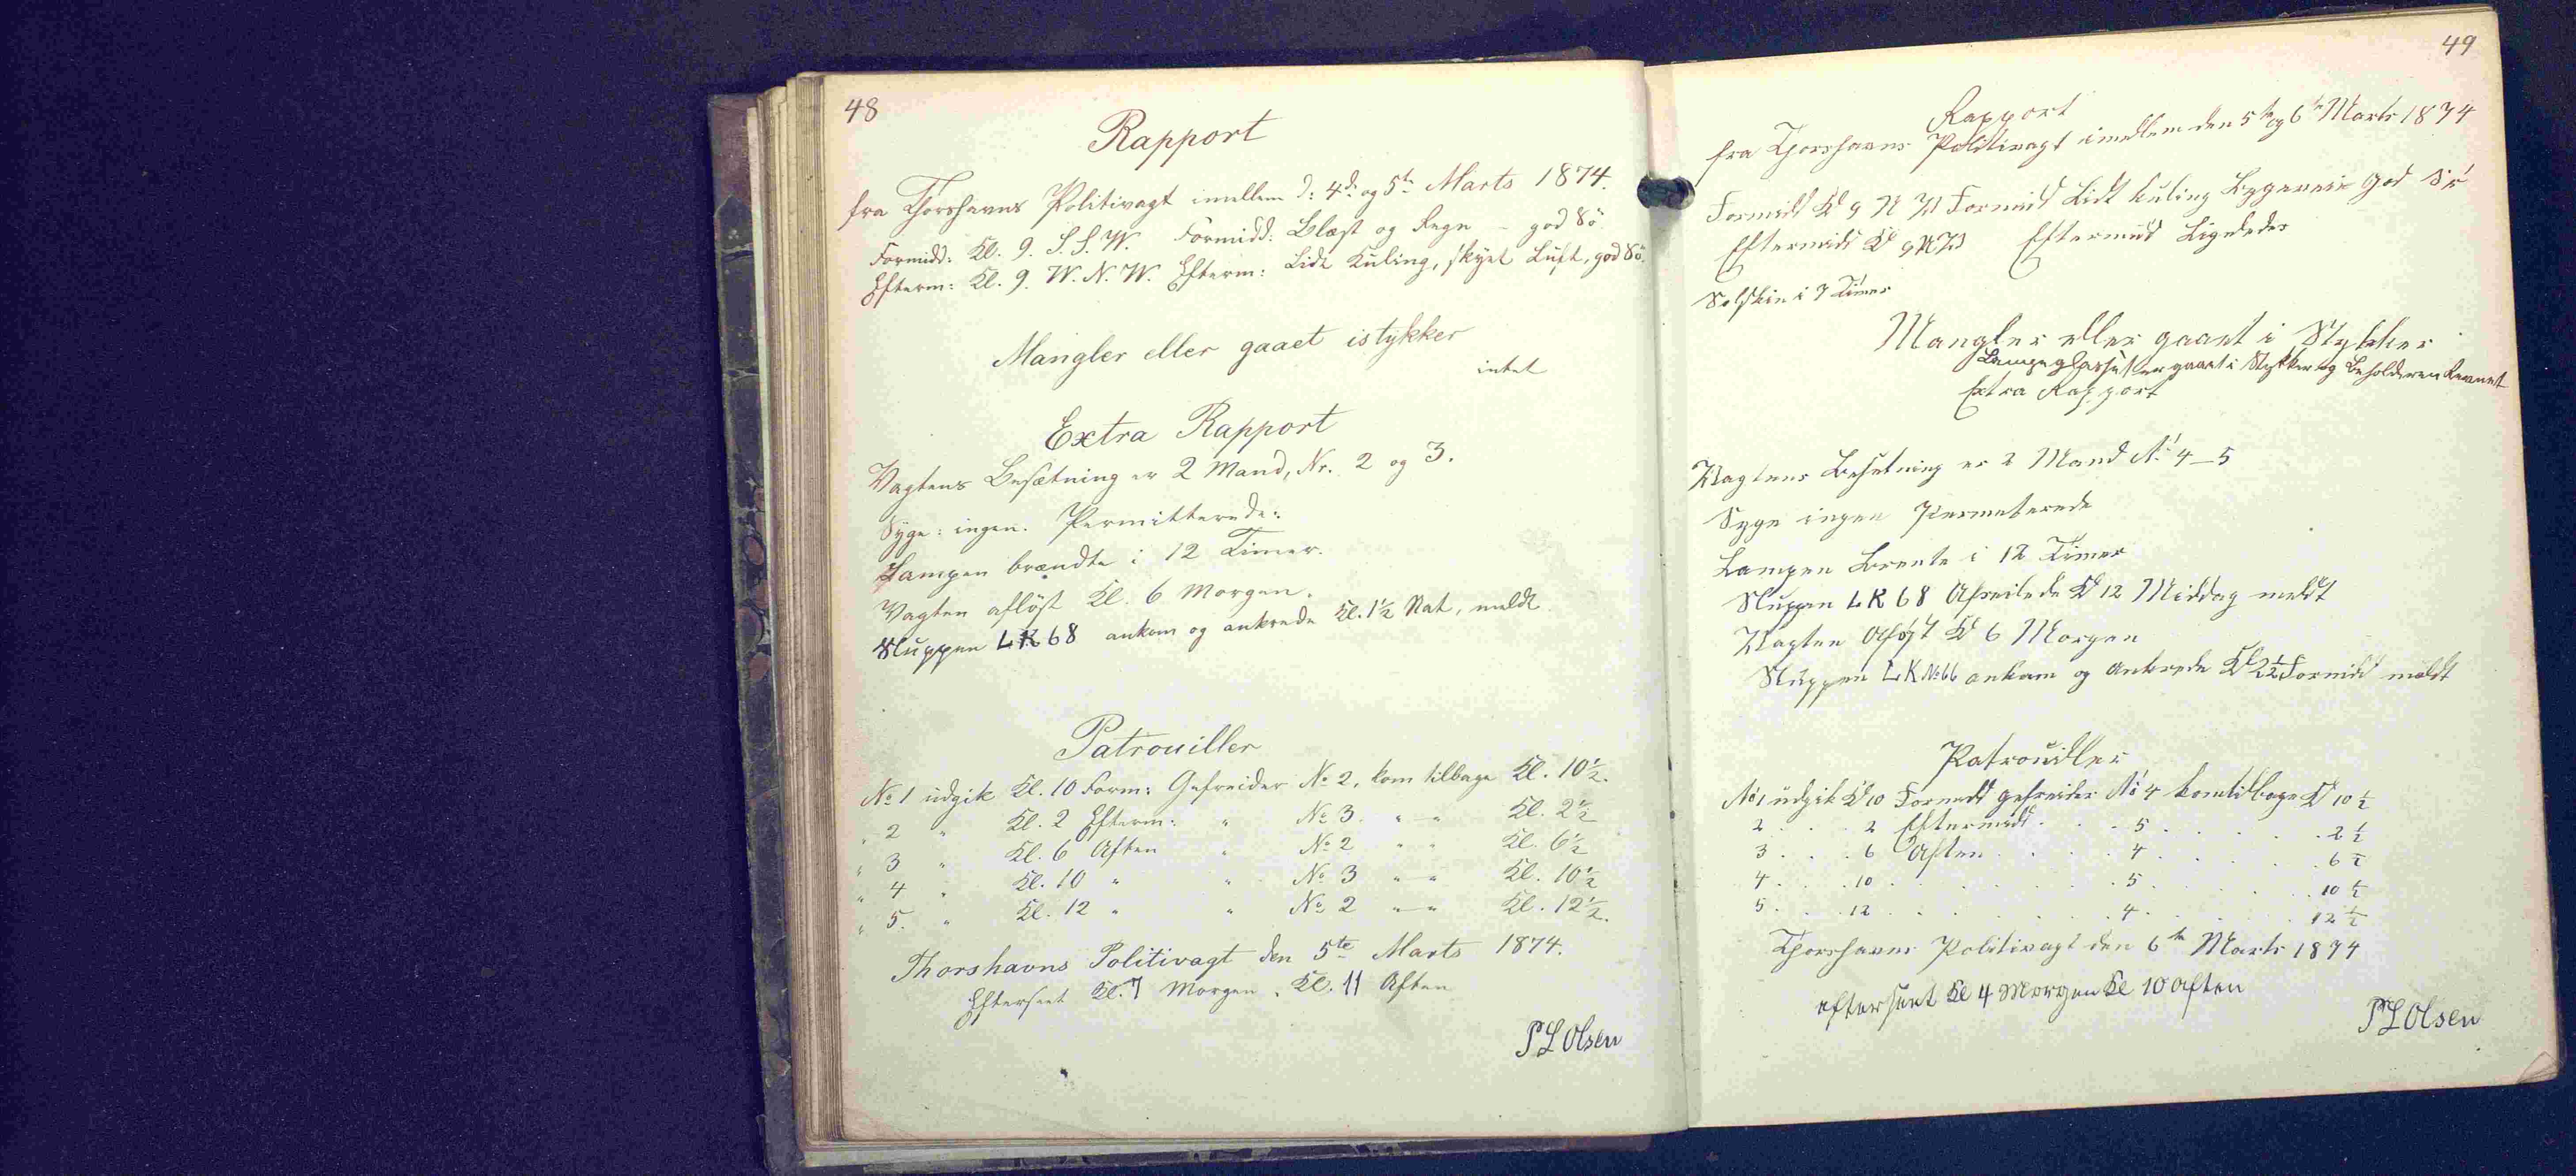 48
Rapport
fra Thorshavns Politivagt imellem d: 4d: og 5te Marts 1874.
Formidd: Kl. 9. S. S. W. Formidd: Blæst og Regn – god Sö
Efterm: Kl. 9. W. N. W. Efterm: Lidt Kuling, skyet Luft, god Sö.
Mangler eller gaaet istykker
intet
Extra Rapport
Vagtens Besætning er 2 Mand, Nr. 2 og 3.
Syge: ingen. Permitterede:
Lampen brændte i 12 Timer.
Vagten aflöst Kl. 6 Morgen.
Sluppen LK 68 ankom og ankrede Kl. 1½ Nat, meldt
Patrouiller
No 1 udgik Kl. 10 Form: Gefreider No 2, kom tilbage Kl. 10½.
" 2 " Kl. 2 Efterm: " No 3. " " Kl. 2½
" 3 " Kl. 6 Aften " No 2 " " Kl. 6½
" 4 " Kl. 10 " " No 3 " " Kl. 10½
" 5. " Kl. 12 " " No 2 " " Kl. 12½.
Thorshavns Politivagt den 5te Marts 1874.
Efterseet Kl. 7 Morgen. Kl. 11 Aften
P L Olsen
49
Rapport
fra Thorshavns Politivagt imellem den 5te og 6te Marts 1874
Formidd Kl 9 N W Formidd Lidt Kuling god Sö
Eftermidd Kl 9 N W Eftermidd Ligeledes
Solskin i 7 Timer
Mangler eller gaaet i Stykker
Lampeglasset er gaaet i Stykker og Beholderen Revnet
Extra Rapport
Vagtens Besetning er 2 Mand No 4 – 5
Syge ingen Permeterede
Lampen Brente i 12 Timer
Sluppen LK 68 Afseilede Kl 12 Middag meldt
Vagten Aflöst Kl 6 Morgen
Sluppen LK No 66 ankom og Ankrede Kl 2½ Formidd meldt
Patrouiller
No 1 udgik Kl 10 Formidd gefreider No 4 kom tilbage Kl 10½
2 . . . 2 Eftermidd . . . 5 . . . . . 2½
3 . . . 6 Aften . . . . 4 . . . . . 6½
4 . . . 10 . . . . . . . 5 . . . . . 10½
5 . . . 12 . . . . . . . 4 . . . . . 12½
Thorshavns Politivagt den 6te Marts 1874
efterseet Kl 4 Morgen Kl 10 Aften
P L Olsen